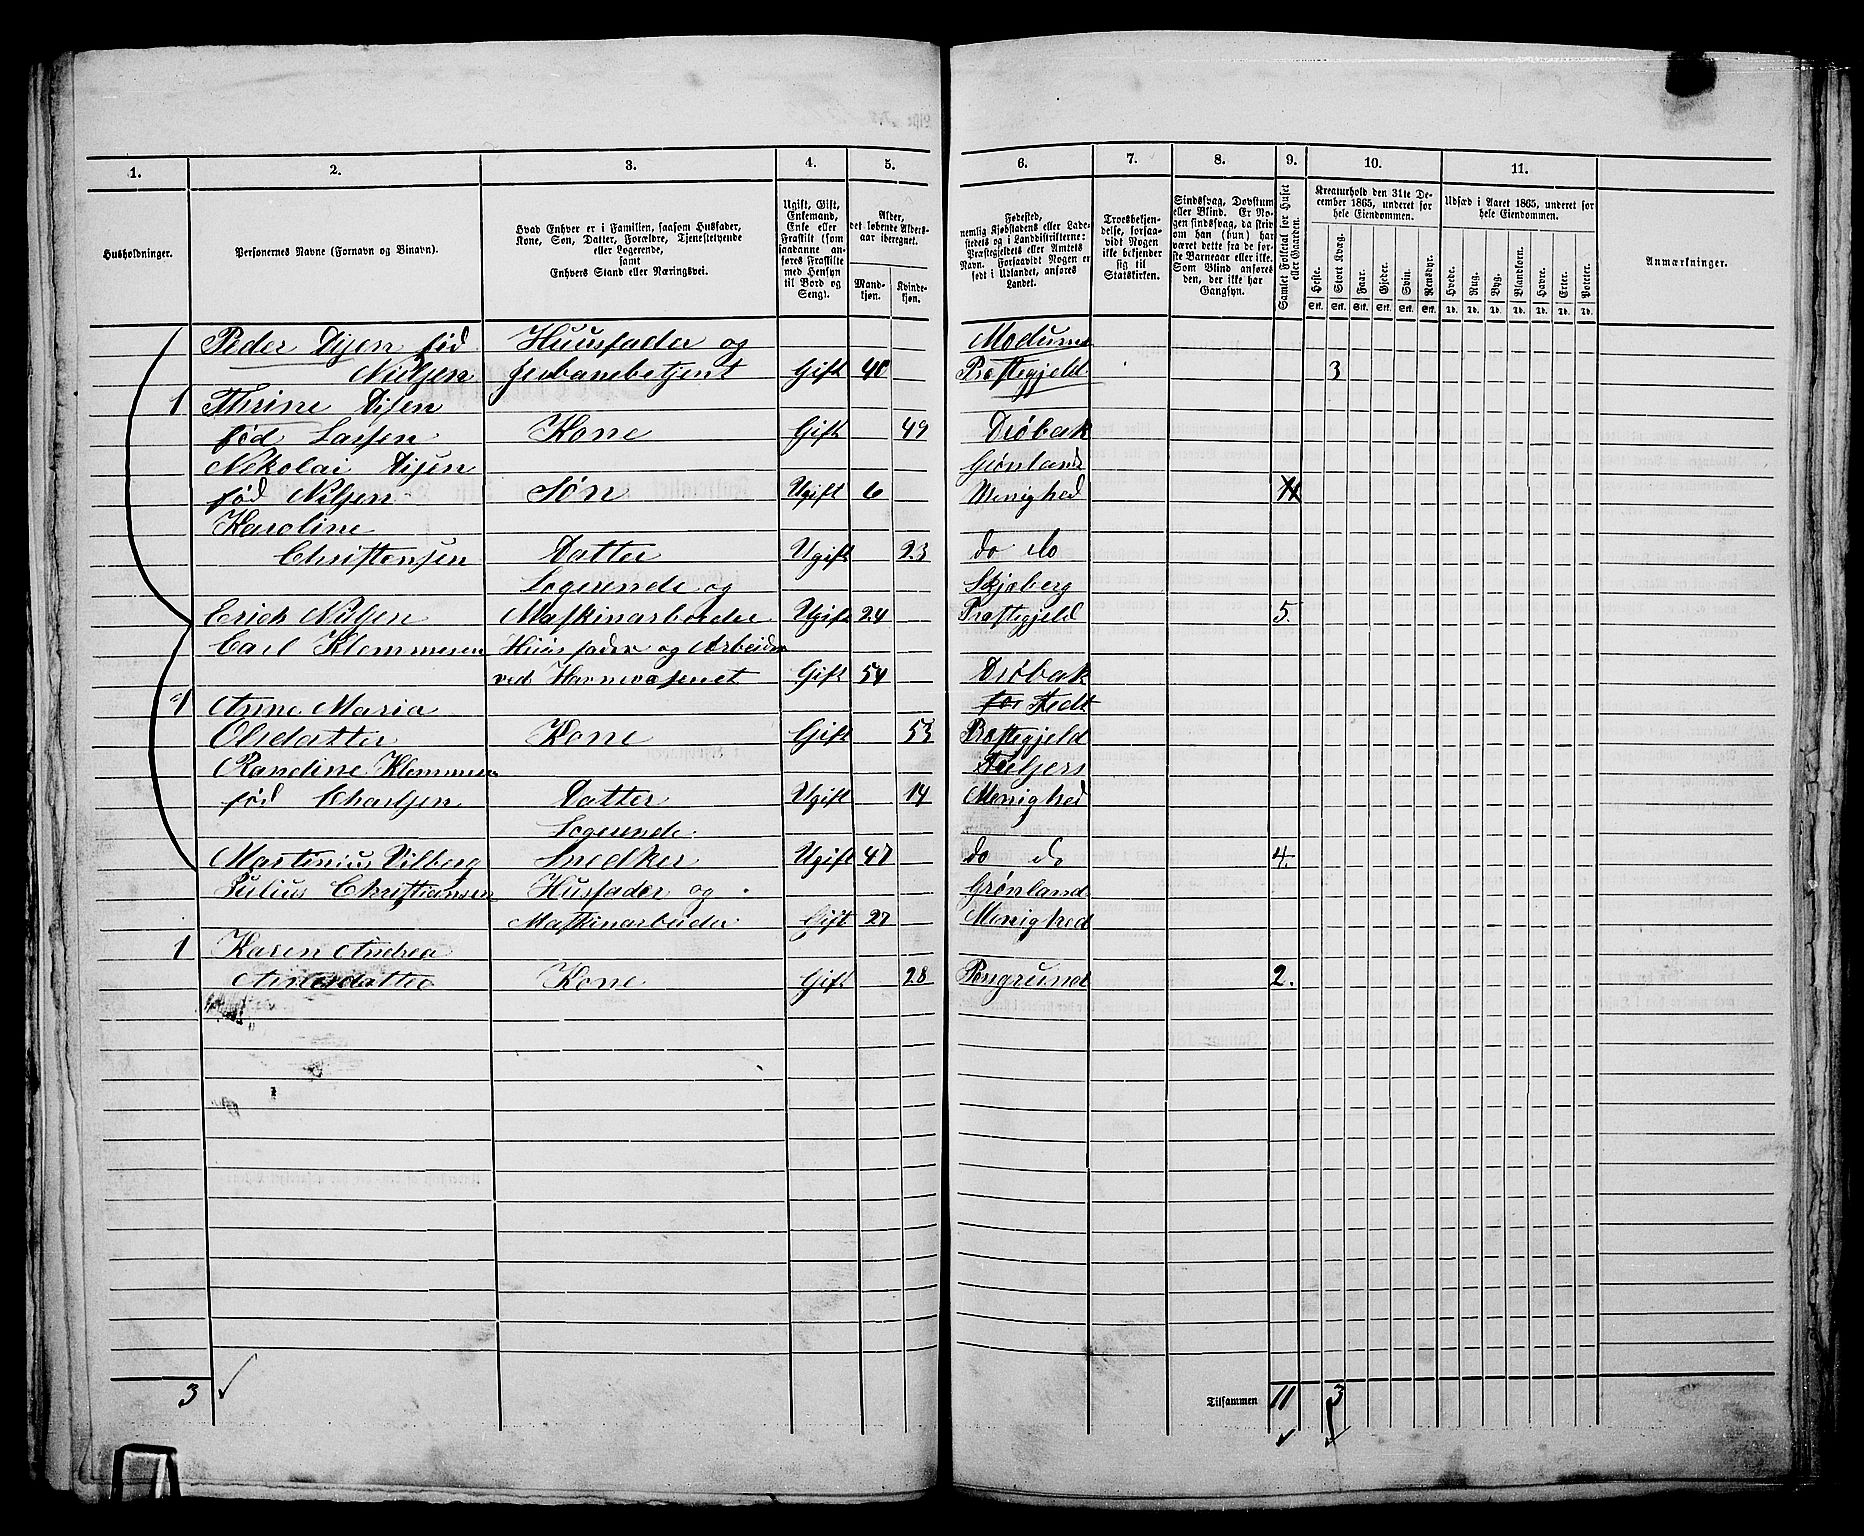 1. 2. 3. 4. 5. 6. 7. 8. 9. 10. 11.
Husholdninger.
Personernes Navne (Fornavn og Binavn).
Hvad Enhver er i Familien, saasom Husfader,
Kone, Søn, Datter, Forældre, Tjenestetyende
eller Logerende,
samt
Enhvers Stand eller Næringsvei.
Ugift, Gift,
Enkemand,
Enke eller
Fraskilt (som
saadanne an-
føres Fraskilte
med Hensyn
til Bord og
Seng).
Alder,
det løbende Alders-
aar iberegnet.
Mand-
kjøn.
Kvinde-
kjøn.
Fødested,
nemlig Kjøbstadens eller Lade-
stedets og i Landdistrikterne:
Præstegjeldets eller Amtets
Navn. Forsaavidt Nogen er
født i Udlandet, anføres
Landet.
Troesbekjen-
delse, forsaa-
vidt Nogen
ikke bekjender
sig til
Statskirken.
Sindssvag, Døvstum
eller Blind. Er No-
gen sindssvag, da skriv
om han (hun) har
været dette fra de før-
ste Barneaar eller ikke.
Som Blind anføres
den, der ikke har
Gangsyn.
Samlet Folketal for Huset
eller Gaarden.
Kreaturhold den 31te De-
cember 1865, underet for
hele Eiendommen.
Heste. Stort Kvæg. Faar. Gjeder. Svin. Rensdyr.
Stk. Stk. Stk. Stk. Stk. Stk.
Udsæd i Aaret 1865, underet for
hele Eiendommen.
Hvede. Rug. Byg. Blandkorn. Havre. Erter. Poteter.
Td. Td. Td. Td. Td. Td. Td.
Anmærkninger.
Peder Dijen fød Huusfader og Modums
Nilsen Jerbanebetjent Gift 40 Præstegjeld 3
1 Thrine Dijen
fød Larsen Kone Gift 49 Drøbak
Nekolai Dijen Grønlands
fød Nilsen Søn Ugift 6 Menighed
Karoline
Christensen Datter Ugift 23 do do
Logerende og Skjeberg
Erick Nilsen Maskinarbeider Ugift 24 Præstegjeld 5.
Carl Klemmesen Huusfader og Arbeider
ved Havnevæsenet Gift 54 Drøbak
1 Anne Maria
Olsdatter Kone Gift 53 Præstegjeld
Randine Klemmesen
fød Charlsen Datter Ugift 14 Menighed
Logerende
Martinius Vilberg Snedker Ugift 47 do do 4.
Julius Christiansen Husfader og Grønland
Maskinarbeider Gift 27 Menighed
1 Karen Andrea
Andersdatter Kone Gift 28 Porsgrund 2.
3 Tilsammen 11 3